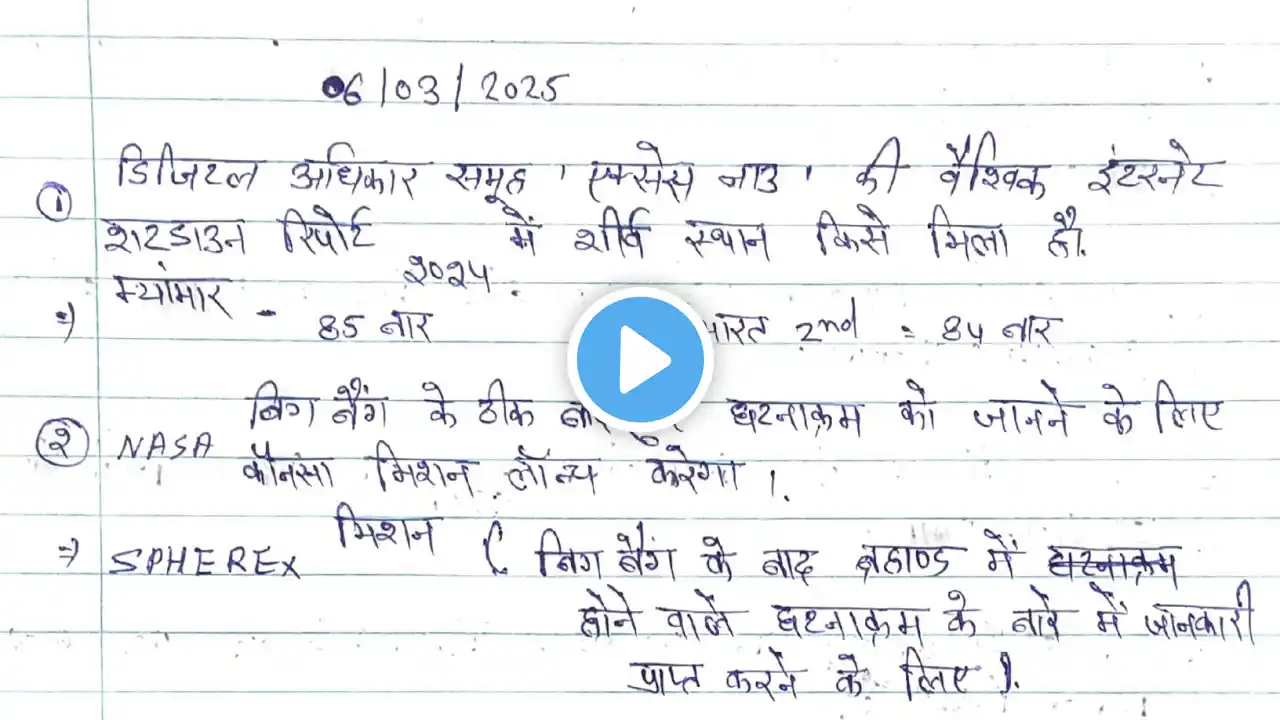 06/03/2025
① डिजिटल अधिकार समूह 'एक्सेस नाउ' की वैश्विक इंटरनेट
शटडाउन रिपोर्ट 2024 में शीर्ष स्थान किसे मिला है.
=) म्यांमार - 85 बार भारत 2nd = 84 बार
② NASA बिग बैंग के ठीक बाद घटनाक्रम को जानने के लिए
कौनसा मिशन लॉन्च करेगा ।
=) SPHEREx मिशन ( बिग बैंग के बाद ब्रह्माण्ड में घटनाक्रम
होने वाले घटनाक्रम के बारे में जानकारी
प्राप्त करने के लिए ).